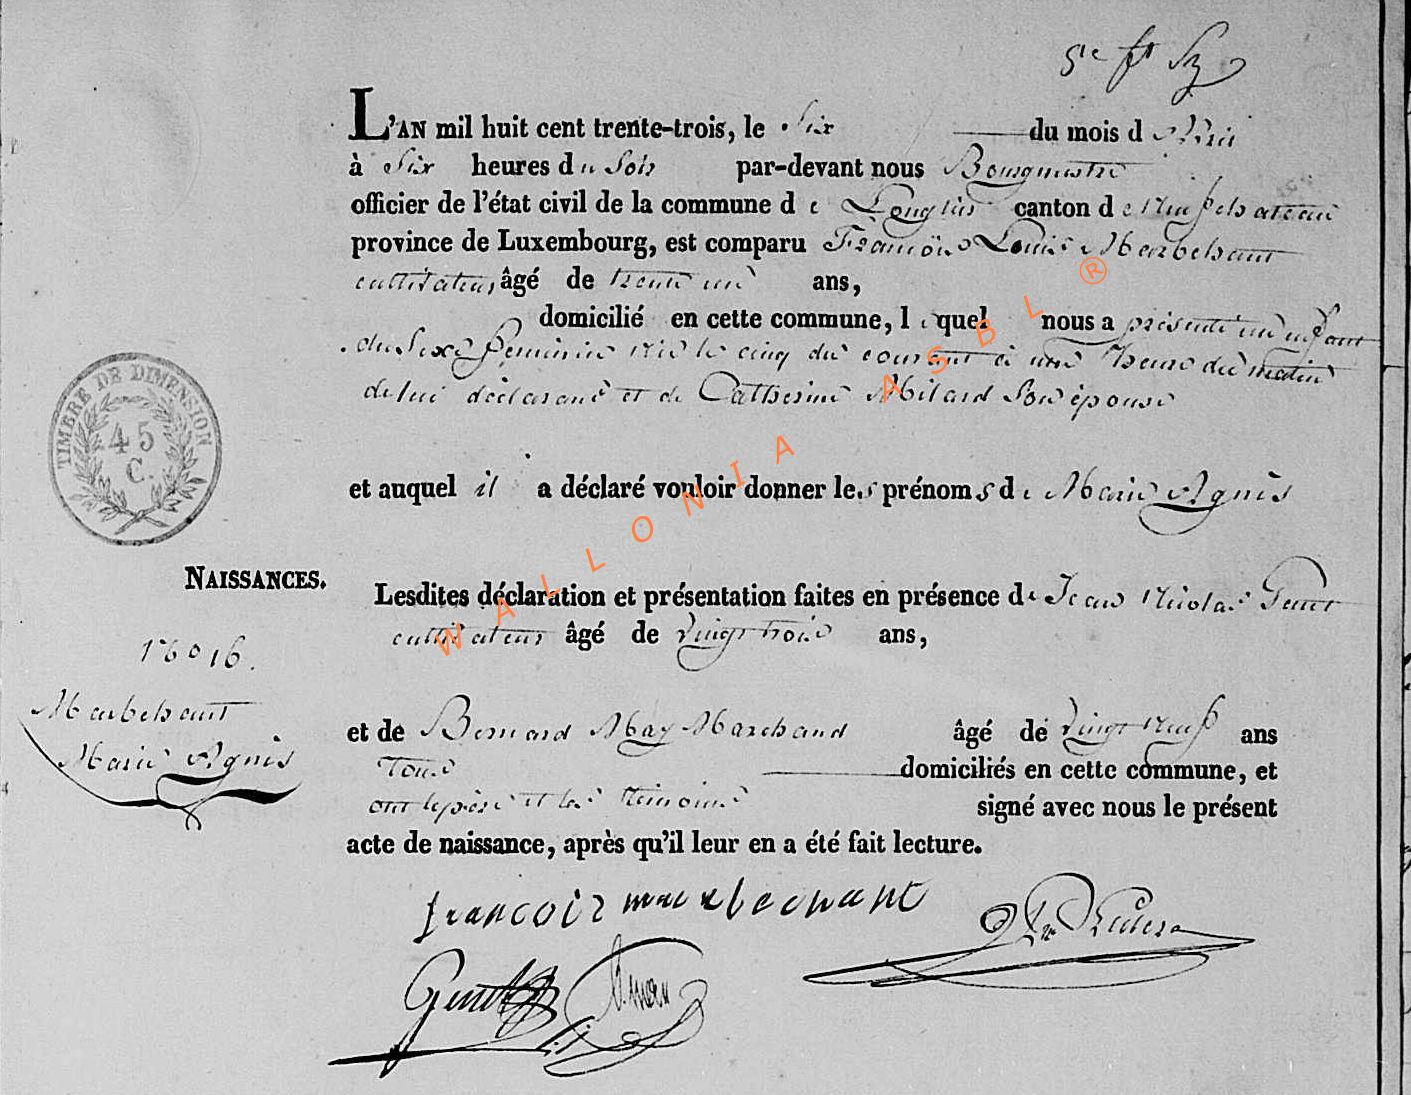 L'AN mil huit cent trente-trois, le six du mois d'avril
à Six heures du Soir par-devant nous Bourgmestre
officier de l'état civil de la commune de Longlier canton de Neufchateau
province de Luxembourg, est comparu François Louis Marbehant
cultivateur âgé de trente un ans,
domicilié en cette commune, lequel nous a présenté un enfant
du Sexe feminin né le cinq du courant à une heure du matin
de lui déclarant et de Catherine Milard Son épouse
TIMBRE DE DIMENSION
45
C.
et auquel il a déclaré vouloir donner les prénoms de Marie Agnès
NAISSANCES.
Lesdites déclaration et présentation faites en présence de Jean Nicolas
cultivateur âgé de vingt trois ans,
No 16.
Marbehant
Marie Agnès
et de Bernard May Marchand âgé de vingt neuf ans
Tous domiciliés en cette commune, et
ont le père et les témoins signé avec nous le présent
acte de naissance, après qu'il leur en a été fait lecture.
francois marbechant
WALLONIA ASBL ®